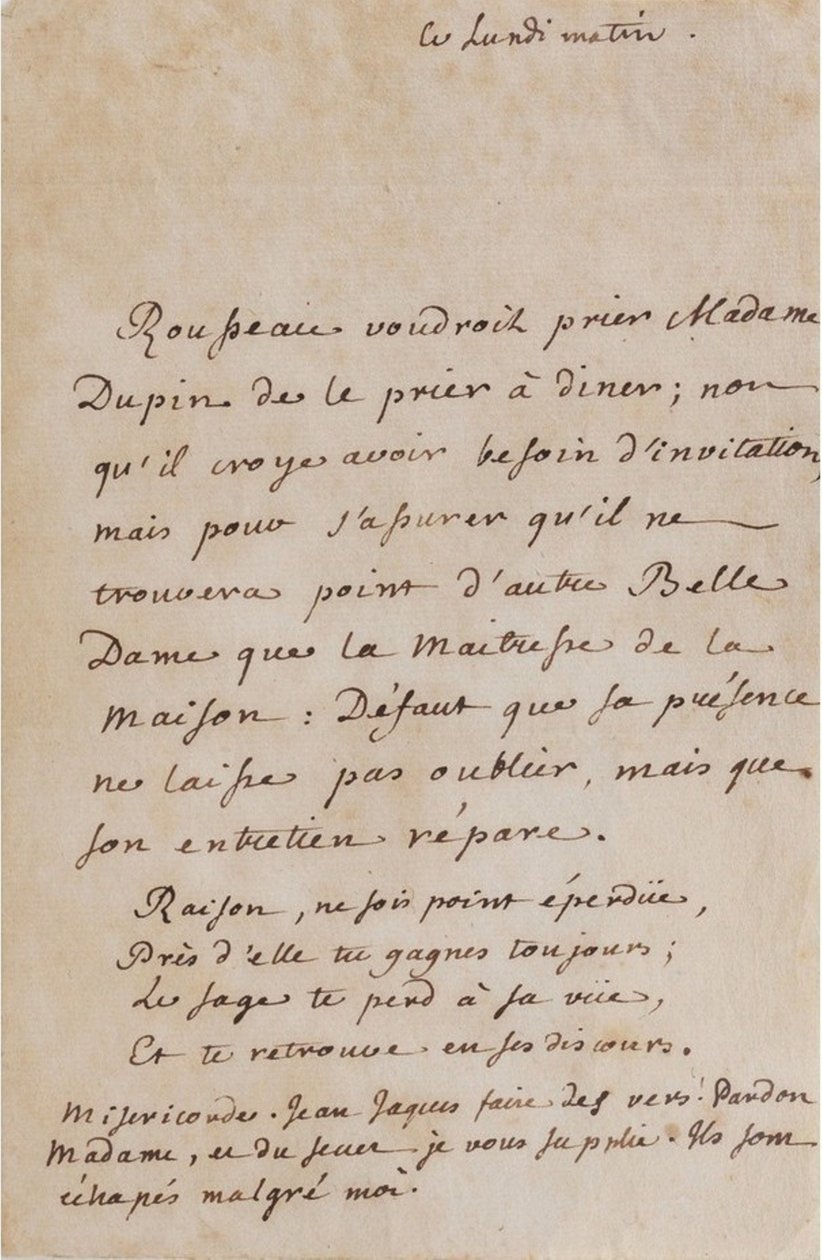 ce Lundi matin.
Rousseau voudroit prier Madame
Dupin de le prier à diner; non
qu'il croye avoir besoin d'invitation,
mais pour s'assurer qu'il ne
trouvera point d'autre Belle
Dame que la Maitresse de la
Maison : Défaut que sa présence
ne laisse pas oublier, mais que
son entretien répare.
Raison, ne sois point éperdüe,
Près d'elle tu gagnes toujours;
Le sage te perd à sa vüe,
Et te retrouve en ses discours.
Misericorde. Jean Jaques faire des vers! Pardon
Madame, et du secret je vous supplie. Ils sont
échapés malgré moi.